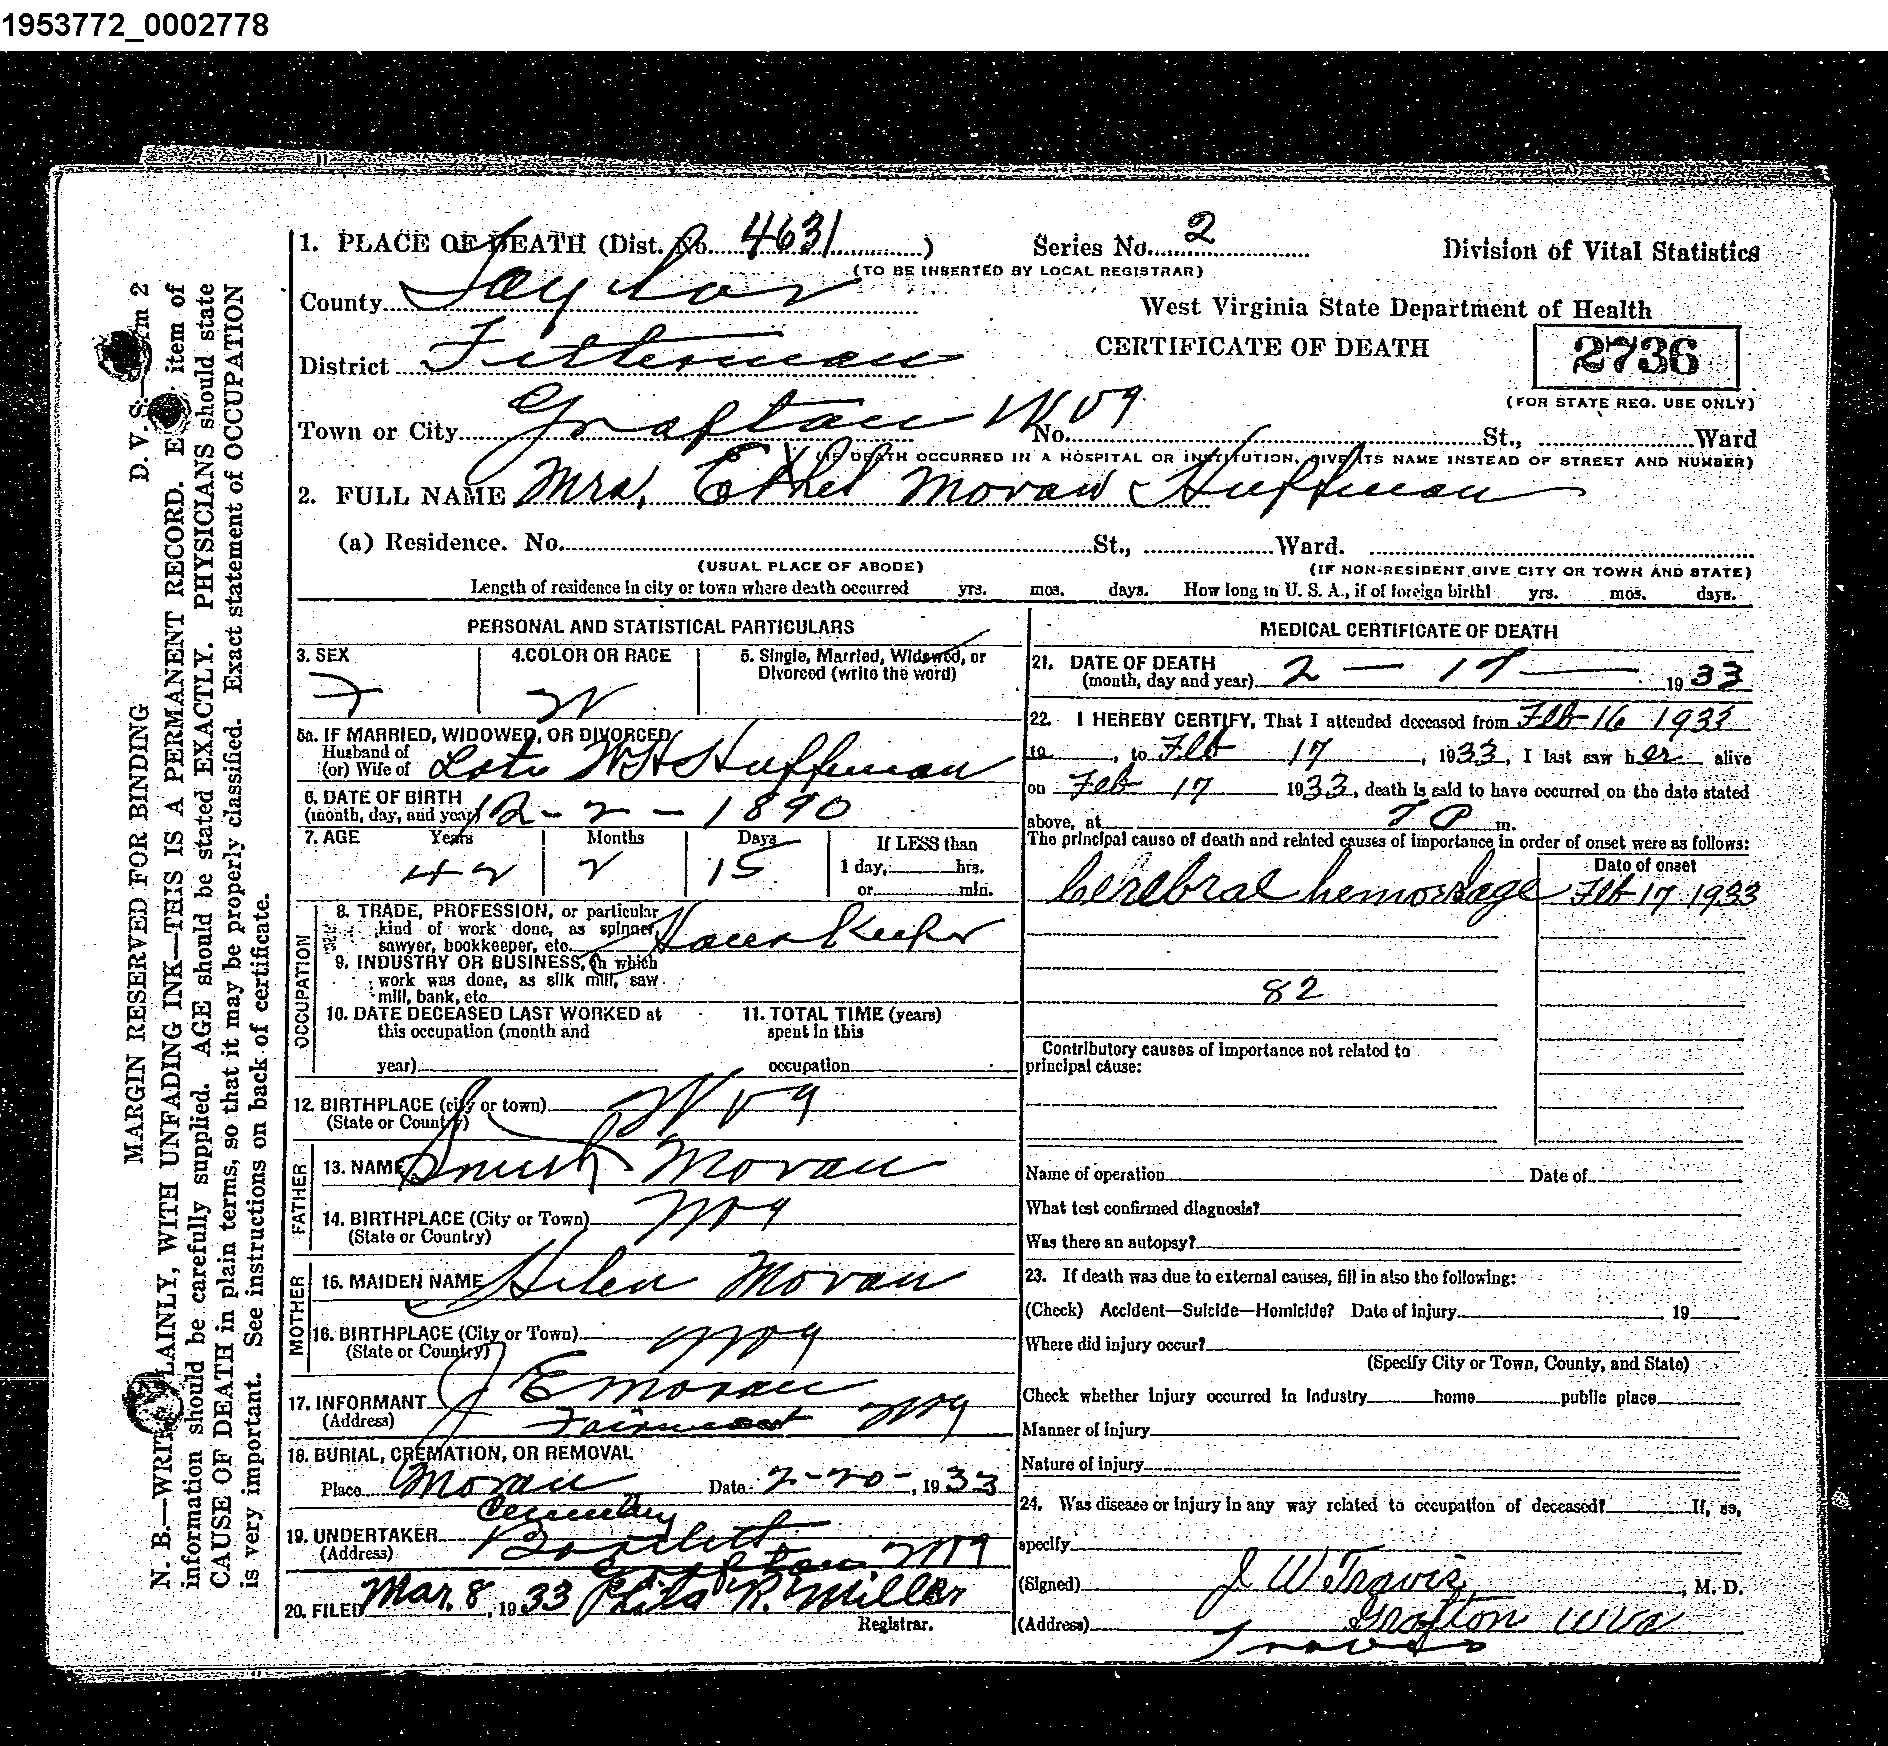 1953772_0002778
1. PLACE OF DEATH (Dist. No. 4631 ) Series No. 2 Division of Vital Statistics
(TO BE INSERTED BY LOCAL REGISTRAR)
County Taylor West Virginia State Department of Health
District Fetterman CERTIFICATE OF DEATH 2736
(FOR STATE REG. USE ONLY)
Town or City Grafton W Va No. St., Ward
(IF DEATH OCCURRED IN A HOSPITAL OR INSTITUTION, GIVE ITS NAME INSTEAD OF STREET AND NUMBER)
2. FULL NAME Mrs. Ethel Moran Huffman
(a) Residence. No. St., Ward.
(USUAL PLACE OF ABODE) (IF NON-RESIDENT GIVE CITY OR TOWN AND STATE)
Length of residence in city or town where death occurred yrs. mos. days. How long in U. S. A., if of foreign birth? yrs. mos. days.
PERSONAL AND STATISTICAL PARTICULARS
3. SEX 4. COLOR OR RACE 5. Single, Married, Widowed, or
Divorced (write the word)
F W
5a. IF MARRIED, WIDOWED, OR DIVORCED
Husband of
(or) Wife of Late W H Huffman
6. DATE OF BIRTH
(month, day, and year) 12 - 2 - 1890
7. AGE Years Months Days If LESS than
42 2 15 1 day, hrs.
or min.
OCCUPATION
8. TRADE, PROFESSION, or particular
kind of work done, as spinner,
sawyer, bookkeeper, etc. House Keeper
9. INDUSTRY OR BUSINESS, in which
work was done, as silk mill, saw
mill, bank, etc.
10. DATE DECEASED LAST WORKED at
this occupation (month and
year)
11. TOTAL TIME (years)
spent in this
occupation
12. BIRTHPLACE (city or town) W Va
(State or Country)
FATHER
13. NAME Smith Moran
14. BIRTHPLACE (City or Town) W Va
(State or Country)
MOTHER
15. MAIDEN NAME Helen Moran
16. BIRTHPLACE (City or Town) W Va
(State or Country)
17. INFORMANT J E Moran
(Address) Fairmont W Va
18. BURIAL, CREMATION, OR REMOVAL
Place Moran Cemetery Date 2-20-, 1933
19. UNDERTAKER Bartlett
(Address) Grafton W Va
20. FILED Mar. 8, 1933 Phila R. Miller
Registrar.
MEDICAL CERTIFICATE OF DEATH
21. DATE OF DEATH
(month, day and year) 2 — 17 — 1933
22. I HEREBY CERTIFY, That I attended deceased from Feb 16 1933
19 , to Feb 17 , 1933, I last saw her alive
on Feb 17 1933, death is said to have occurred on the date stated
above, at P m.
The principal cause of death and related causes of importance in order of onset were as follows:
Date of onset
Cerebral hemorrhage Feb 17 1933
82
Contributory causes of importance not related to
principal cause:
Name of operation Date of
What test confirmed diagnosis?
Was there an autopsy?
23. If death was due to external causes, fill in also the following:
(Check) Accident—Suicide—Homicide? Date of injury 19
Where did injury occur?
(Specify City or Town, County, and State)
Check whether injury occurred in industry home public place
Manner of injury
Nature of injury
24. Was disease or injury in any way related to occupation of deceased? If, so,
specify
(Signed) J W Travis, M. D.
(Address) Grafton W Va
Travis
D. V. S.— m 2
MARGIN RESERVED FOR BINDING
N. B.—WRITE PLAINLY, WITH UNFADING INK—THIS IS A PERMANENT RECORD. E item of
information should be carefully supplied. AGE should be stated EXACTLY. PHYSICIANS should state
CAUSE OF DEATH in plain terms, so that it may be properly classified. Exact statement of OCCUPATION
is very important. See instructions on back of certificate.